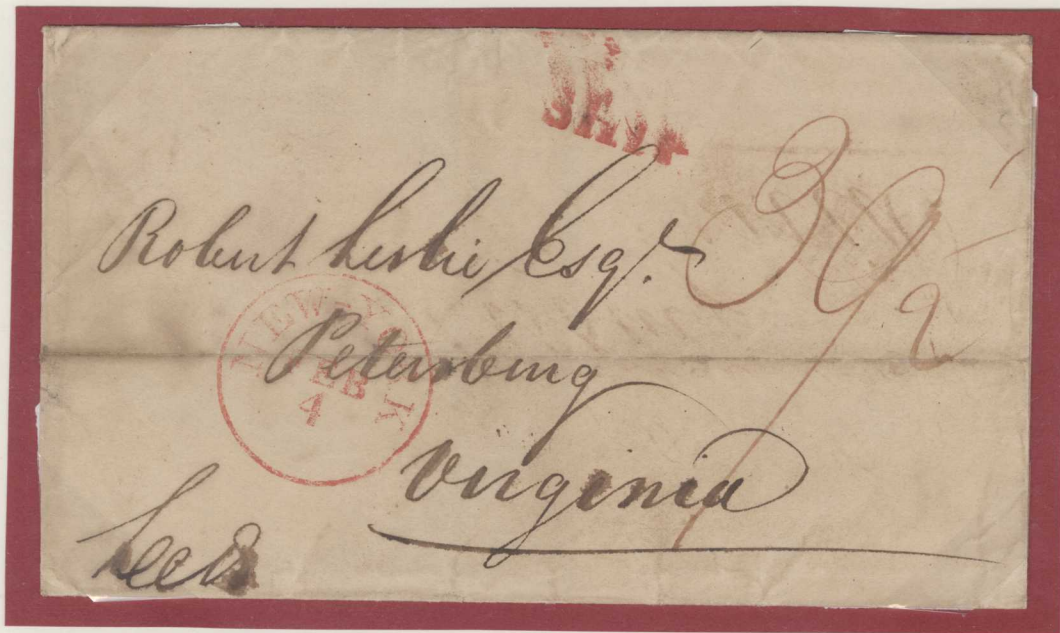 SHIP
Robert Leslie Esqr.
39/2
NEW-YORK
FEB
4
Petersburg
Virginia